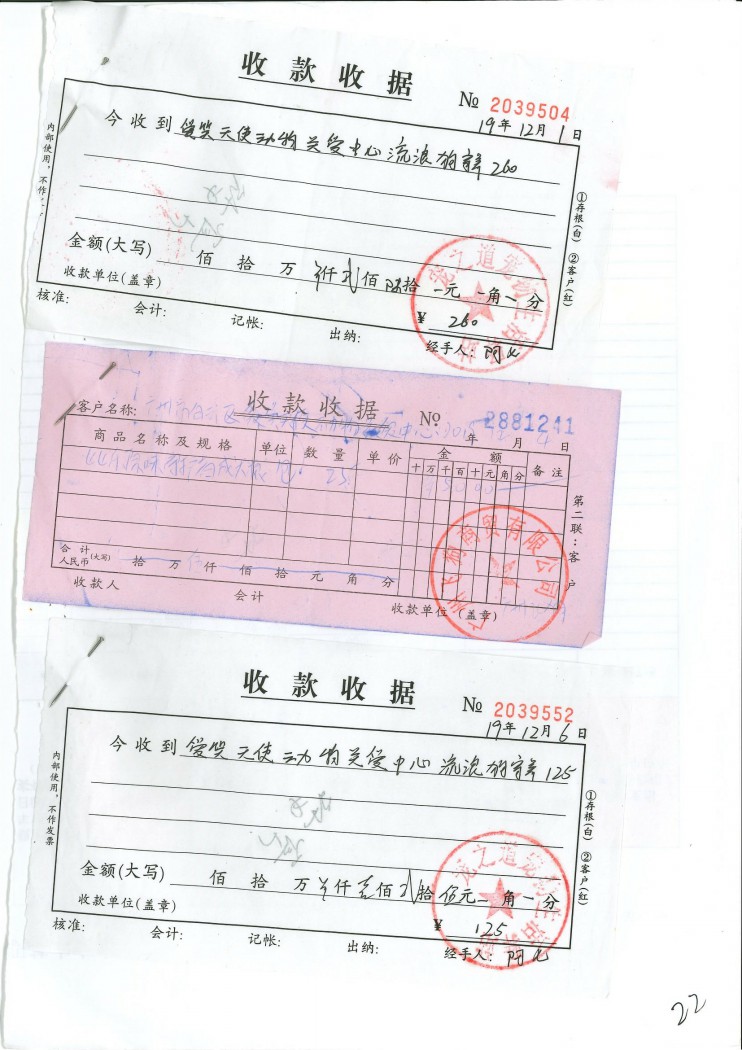 收款收据
№ 2039504
19年12月1日
今收到 爱哭天使动物关爱中心流浪狗寄养260
内部使用,不作
①存根(白) ②客户(红)
金额(大写) 佰 拾 万 仟 贰佰 陆拾 元 角 分
收款单位(盖章)
¥ 260
核准: 会计: 记帐: 出纳: 经手人:
收款收据
№ 2881241
客户名称: 年 月 4 日
商品名称及规格 单位 数量 单价 金额 备注
十 万 千 百 十 元 角 分
包 25
合计人民币(大写) 拾 万 仟 佰 拾 元 角 分
第二联:客户
收款人 会计 收款单位(盖章)
商贸有限公司
收款收据
№ 2039552
19年12月6日
今收到 爱哭天使动物关爱中心流浪狗寄养125
内部使用,不作发票
①存根(白) ②客户(红)
金额(大写) 佰 拾 万 仟 壹佰 贰拾 伍元 角 分
收款单位(盖章)
¥ 125
核准: 会计: 记帐: 出纳: 经手人:
22